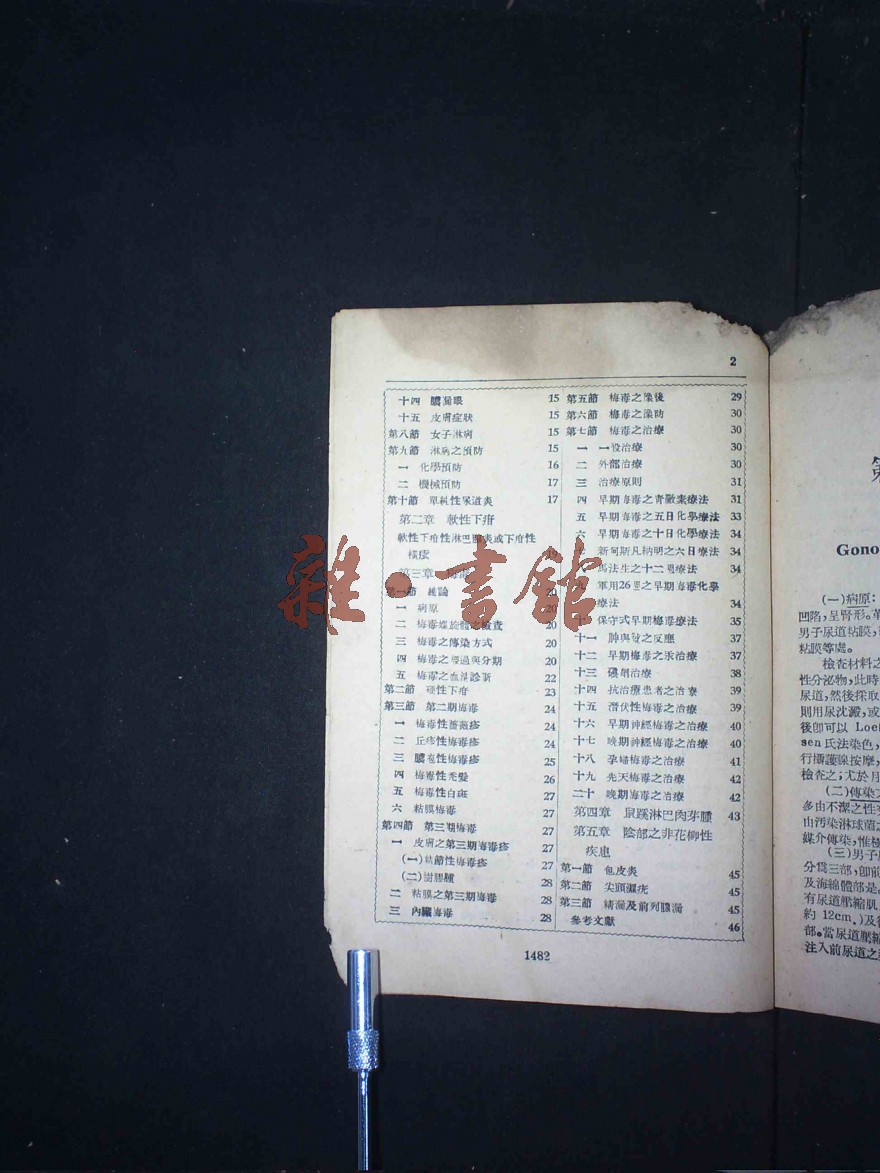 2
十四 膿漏眼 15
十五 皮膚症狀 15
第八節 女子淋病 15
第九節 淋病之預防 15
一 化學預防 16
二 機械預防 17
第十節 單純性尿道炎 17
第二章 軟性下疳
軟性下疳性淋巴腺炎或下疳性
橫痃
第三章
第一節 總論 20
一 病原 20
二 梅毒螺旋體之檢查 20
三 梅毒之傳染方式 20
四 梅毒之經過與分期 20
五 梅毒之血清診斷 22
第二節 硬性下疳 23
第三節 第二期梅毒 24
一 梅毒性薔薇疹 24
二 丘疹性梅毒疹 24
三 膿疱性梅毒疹 25
四 梅毒性禿髮 26
五 梅毒性白斑 27
六 粘膜梅毒 27
第四節 第三期梅毒 27
一 皮膚之第三期梅毒疹 27
(一)結節性梅毒疹 27
(二)樹膠腫 28
二 粘膜之第三期梅毒 28
三 內臟梅毒 28
第五節 梅毒之豫後 29
第六節 梅毒之豫防 30
第七節 梅毒之治療 30
一 一般治療 30
二 外部治療 30
三 治療原則 31
四 早期梅毒之青黴素療法 31
五 早期梅毒之五日化學療法 33
六 早期梅毒之十日化學療法 34
七 新阿斯凡納明之六日療法 34
馬法生之十二週療法 34
九 軍用26週之早期梅毒化學
療法 34
十 保守式早期梅毒療法 35
十一 砷與鉍之反應 37
十二 早期梅毒之汞治療 37
十三 碘劑治療 38
十四 抗治療患者之治療 39
十五 潛伏性梅毒之治療 39
十六 早期神經梅毒之治療 40
十七 晚期神經梅毒之治療 40
十八 孕婦梅毒之治療 41
十九 先天梅毒之治療 42
二十 晚期梅毒之治療 42
第四章 鼠蹊淋巴肉芽腫 43
第五章 陰部之非花柳性
疾患
第一節 包皮炎 45
第二節 尖頭濕疣 45
第三節 精漏及前列腺漏 45
參考文獻 46
1482
雜·書館
Gono
(一)病原:
凹陷,呈腎形。革
男子尿道粘膜,
粘膜等處。
檢查材料之
性分泌物,此時
尿道,然後採取
則用尿沈澱,或
後卽可以 Loef
sen 氏法染色,
行攝護腺按摩,
檢查之;尤於月
(二)傳染
多由不潔之性
由污染淋球菌之
媒介傳染,惟極
(三)男子尿
分爲三部,卽前
及海綿體部是。
有尿道壓縮肌
約 12cm.)及後
部。當尿道壓縮
注入前尿道之